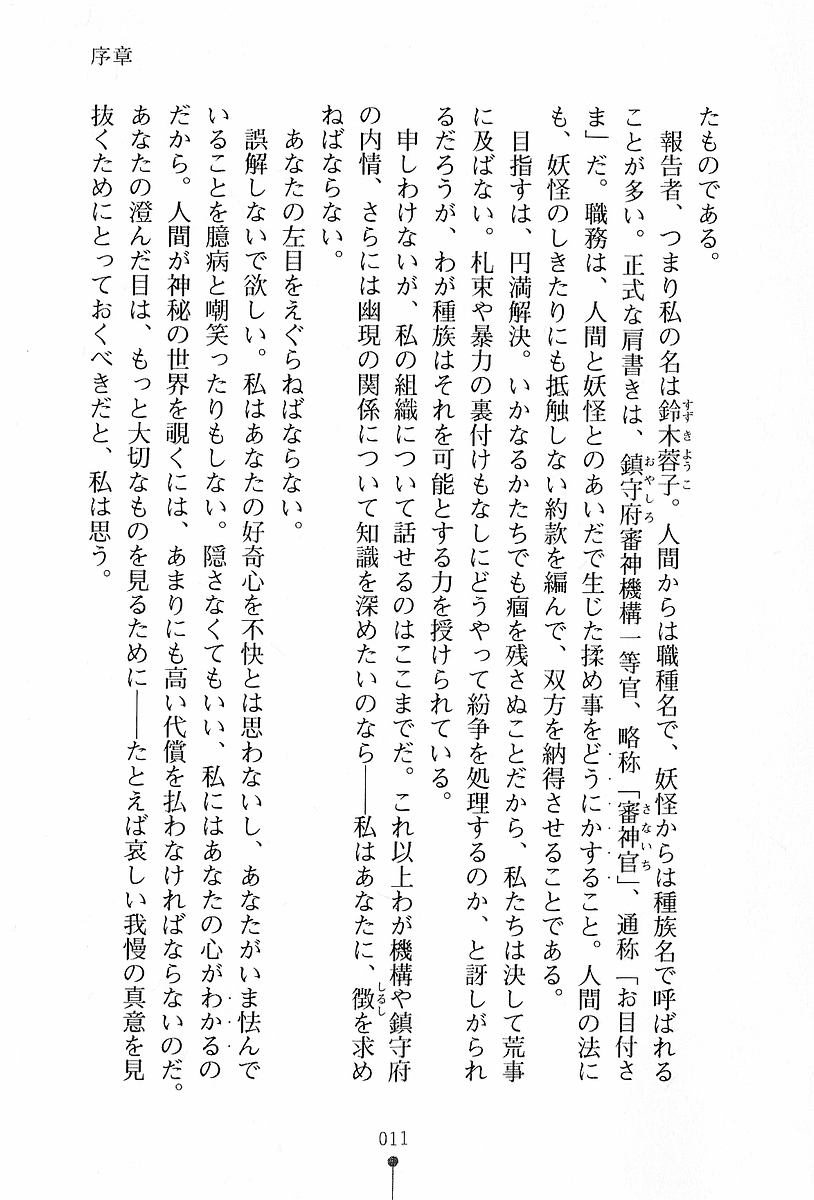 序章
たものである。
　報告者、つまり私の名は鈴木蓉子。人間からは職種名で、妖怪からは種族名で呼ばれる
ことが多い。正式な肩書きは、鎮守府審神機構一等官、略称「審神官」、通称「お目付さ
ま」だ。職務は、人間と妖怪とのあいだで生じた揉め事をどうにかすること。人間の法に
も、妖怪のしきたりにも抵触しない約款を編んで、双方を納得させることである。
　目指すは、円満解決。いかなるかたちでも痼を残さぬことだから、私たちは決して荒事
に及ばない。札束や暴力の裏付けもなしにどうやって紛争を処理するのか、と訝しがられ
るだろうが、わが種族はそれを可能とする力を授けられている。
　申しわけないが、私の組織について話せるのはここまでだ。これ以上わが機構や鎮守府
の内情、さらには幽現の関係について知識を深めたいのなら――私はあなたに、徴を求め
ねばならない。
　あなたの左目をえぐらねばならない。
　誤解しないで欲しい。私はあなたの好奇心を不快とは思わないし、あなたがいま怯んで
いることを臆病と嘲笑ったりもしない。隠さなくてもいい、私にはあなたの心がわかるの
だから。人間が神秘の世界を覗くには、あまりにも高い代償を払わなければならないのだ。
あなたの澄んだ目は、もっと大切なものを見るために――たとえば哀しい我慢の真意を見
抜くためにとっておくべきだと、私は思う。
すずきようこ
おやしろ
さないち
しるし
011